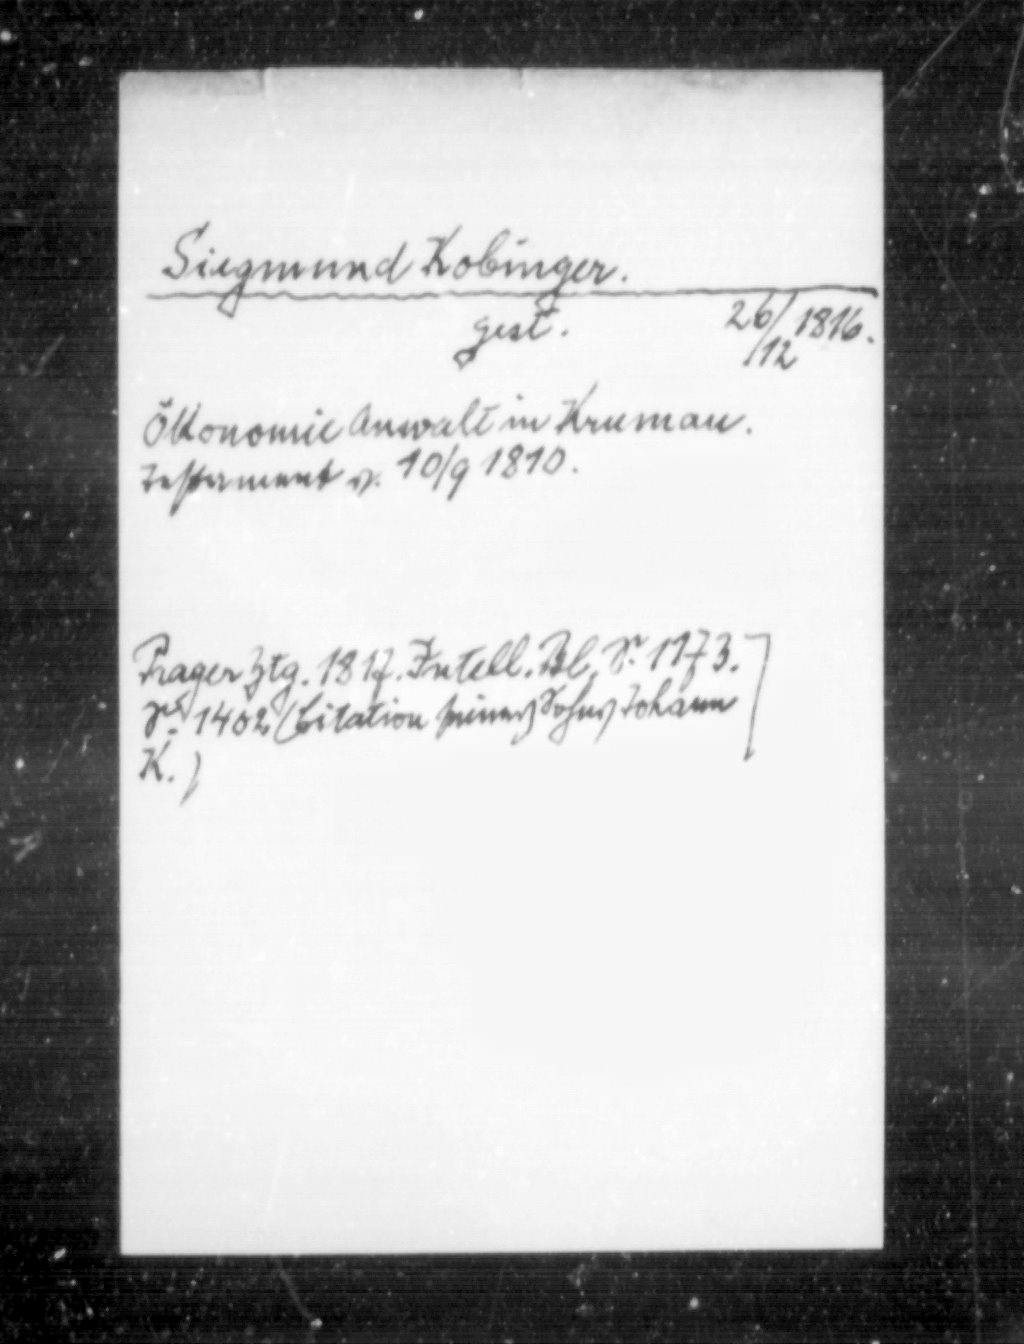 Siegmund Kobinger.
gest. 26/12 1816.
Ökonomie Anwalt in Krumau.
Testament v. 10/9 1810.
Prager Ztg. 1817. Intell. Bl. S. 1173.
S. 1402 (Citation seines Sohnes Johann
K.)